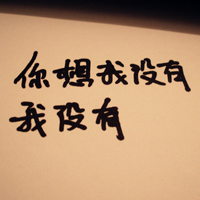 你想我没有
我没有